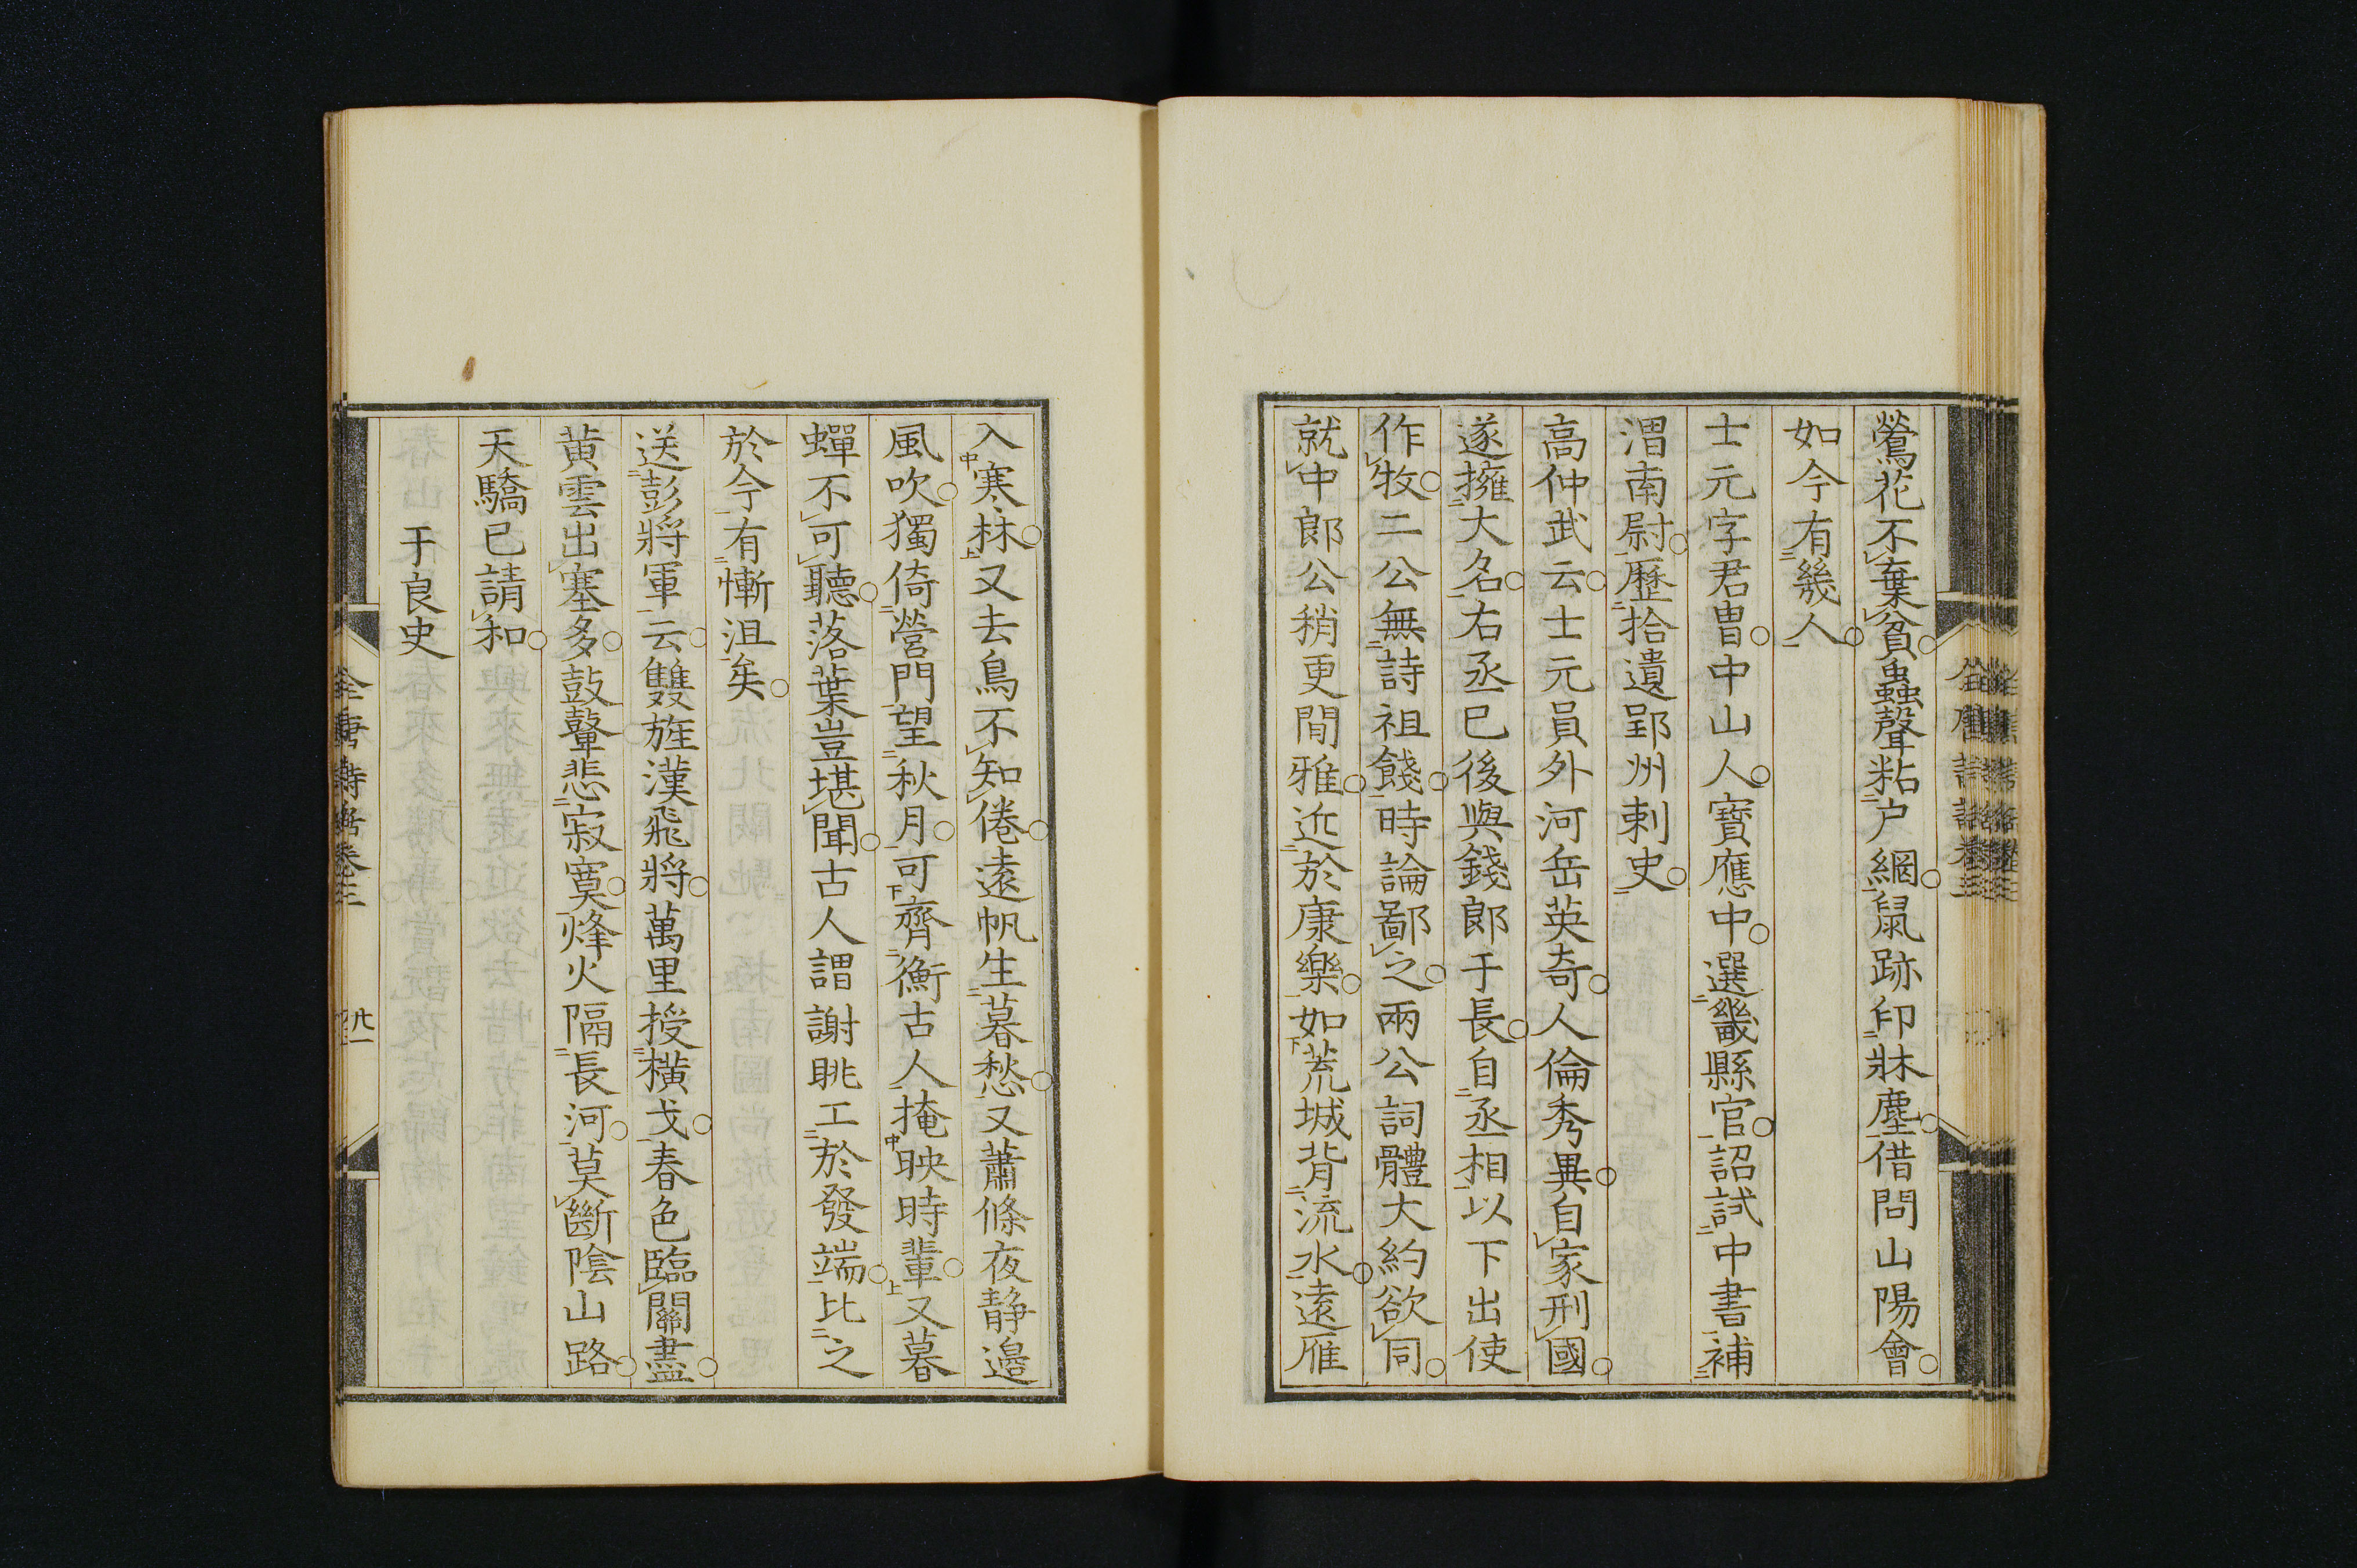 鶯花不棄貧蟲聲粘户網鼠跡印牀塵借問山陽會
如今有幾人
士元字君胄中山人寶應中選畿縣官詔試中書補
渭南尉歷拾遺郢州刺史
高仲武云士元員外河岳英奇人倫秀異自家刑國
遂擁大名右丞已後與錢郎于長自丞相以下出使
作牧二公無詩祖餞時論鄙之兩公詞體大約欲同
就中郎公稍更閒雅近於康樂如荒城背流水遠雁
入寒林又去鳥不知倦遠帆生暮愁又蕭條夜静邉
風吹獨倚營門望秋月可齊衡古人掩映時輩又暮
蟬不可聽落葉豈堪聞古人謂謝眺工於發端比之
於今有慚沮矣
送彭將軍云雙旌漢飛將萬里授橫戈春色臨關盡
黄雲出塞多鼓鼙悲寂寞烽火隔長河莫斷陰山路
天驕已請和
于良史
全唐詩話卷三
廿一